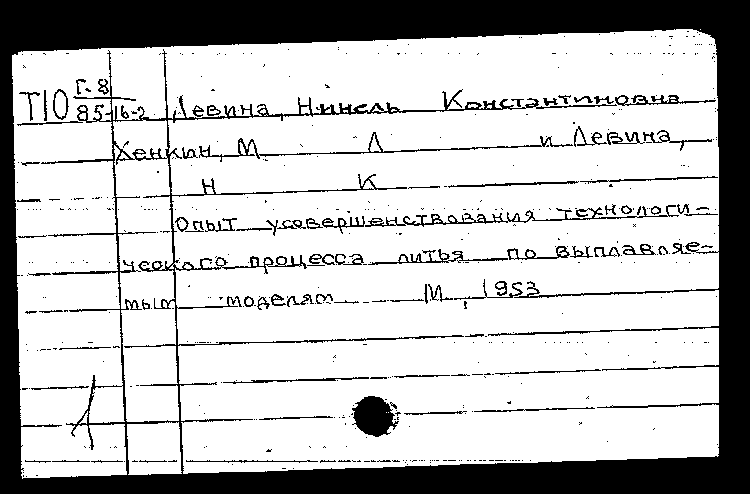 Т10 Г-8
85-16-2 Левина, Нинель Константиновна
Хенкин, М Л и Левина,
Н К
Опыт усовершенствования технологи-
ческого процесса литья по выплавляе-
мым моделям М, 1953